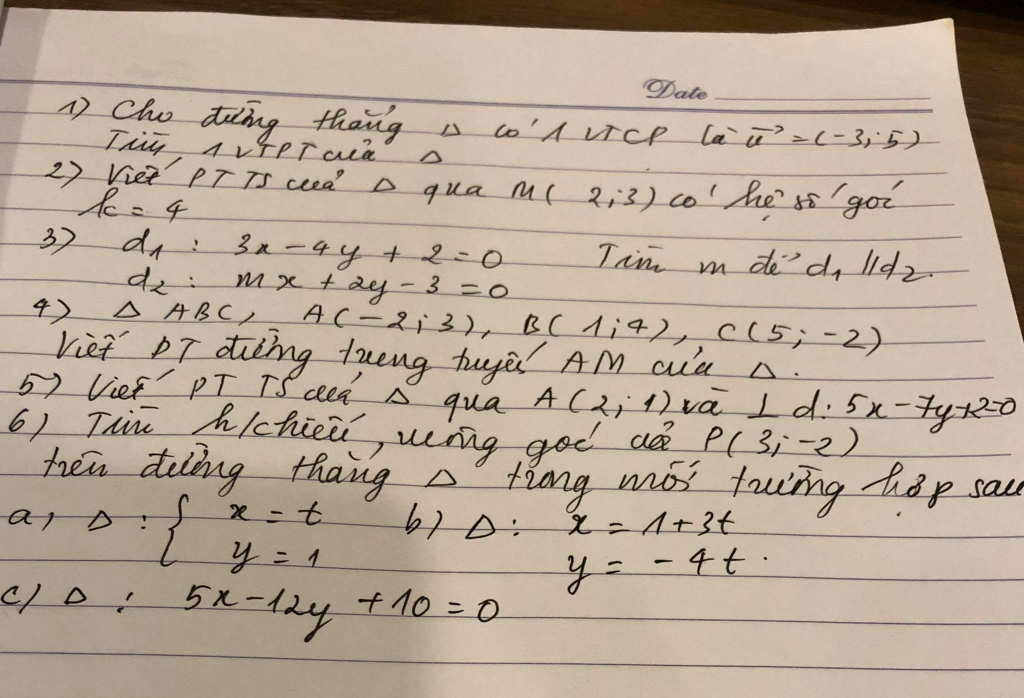 Date
1) Cho đường thẳng Δ có 1 VTCP là u⃗ = (-3; 5)
Tìm 1 VTPT của Δ
2) Viết PT TS của Δ qua M( 2; 3) có hệ số góc
k = 4
3) d1 : 3x - 4y + 2 = 0 Tìm m để d1 // d2.
d2 : mx + 2y - 3 = 0
4) Δ ABC, A(-2; 3), B(1; 4), C(5; -2)
Viết PT đường trung tuyến AM của Δ.
5) Viết PT TS của Δ qua A(2; 1) và ⊥ d: 5x - 7y + 2 = 0
6) Tìm h/chiếu, vuông góc của P(3; -2)
trên đường thẳng Δ trong mỗi trường hợp sau
a, Δ : { x = t b) Δ : x = 1 + 3t
y = 1 y = - 4t.
c) Δ : 5x - 12y + 10 = 0